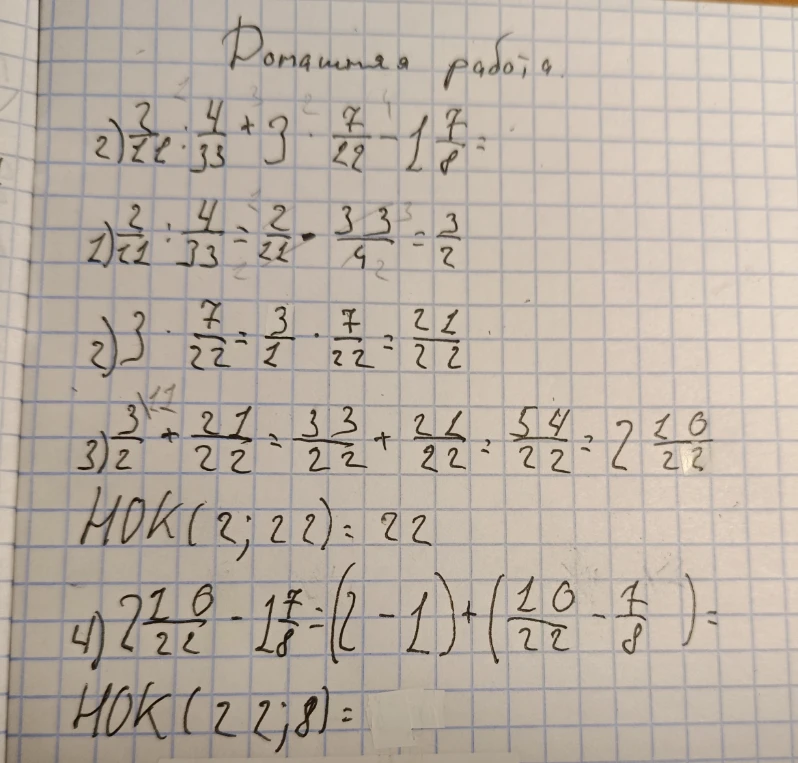 Домашняя работа.
2) 2/11 : 4/33 + 3 · 7/22 - 1 7/8 =
1) 2/11 : 4/33 = 2/11 · 33/4 = 3/2
2) 3 · 7/22 = 3/1 · 7/22 = 21/22
3) 3/2 + 21/22 = 33/22 + 21/22 = 54/22 = 2 10/22
НОК(2;22) = 22
4) 2 10/22 - 1 7/8 = (2 - 1) + (10/22 - 7/8) =
НОК(22;8) =